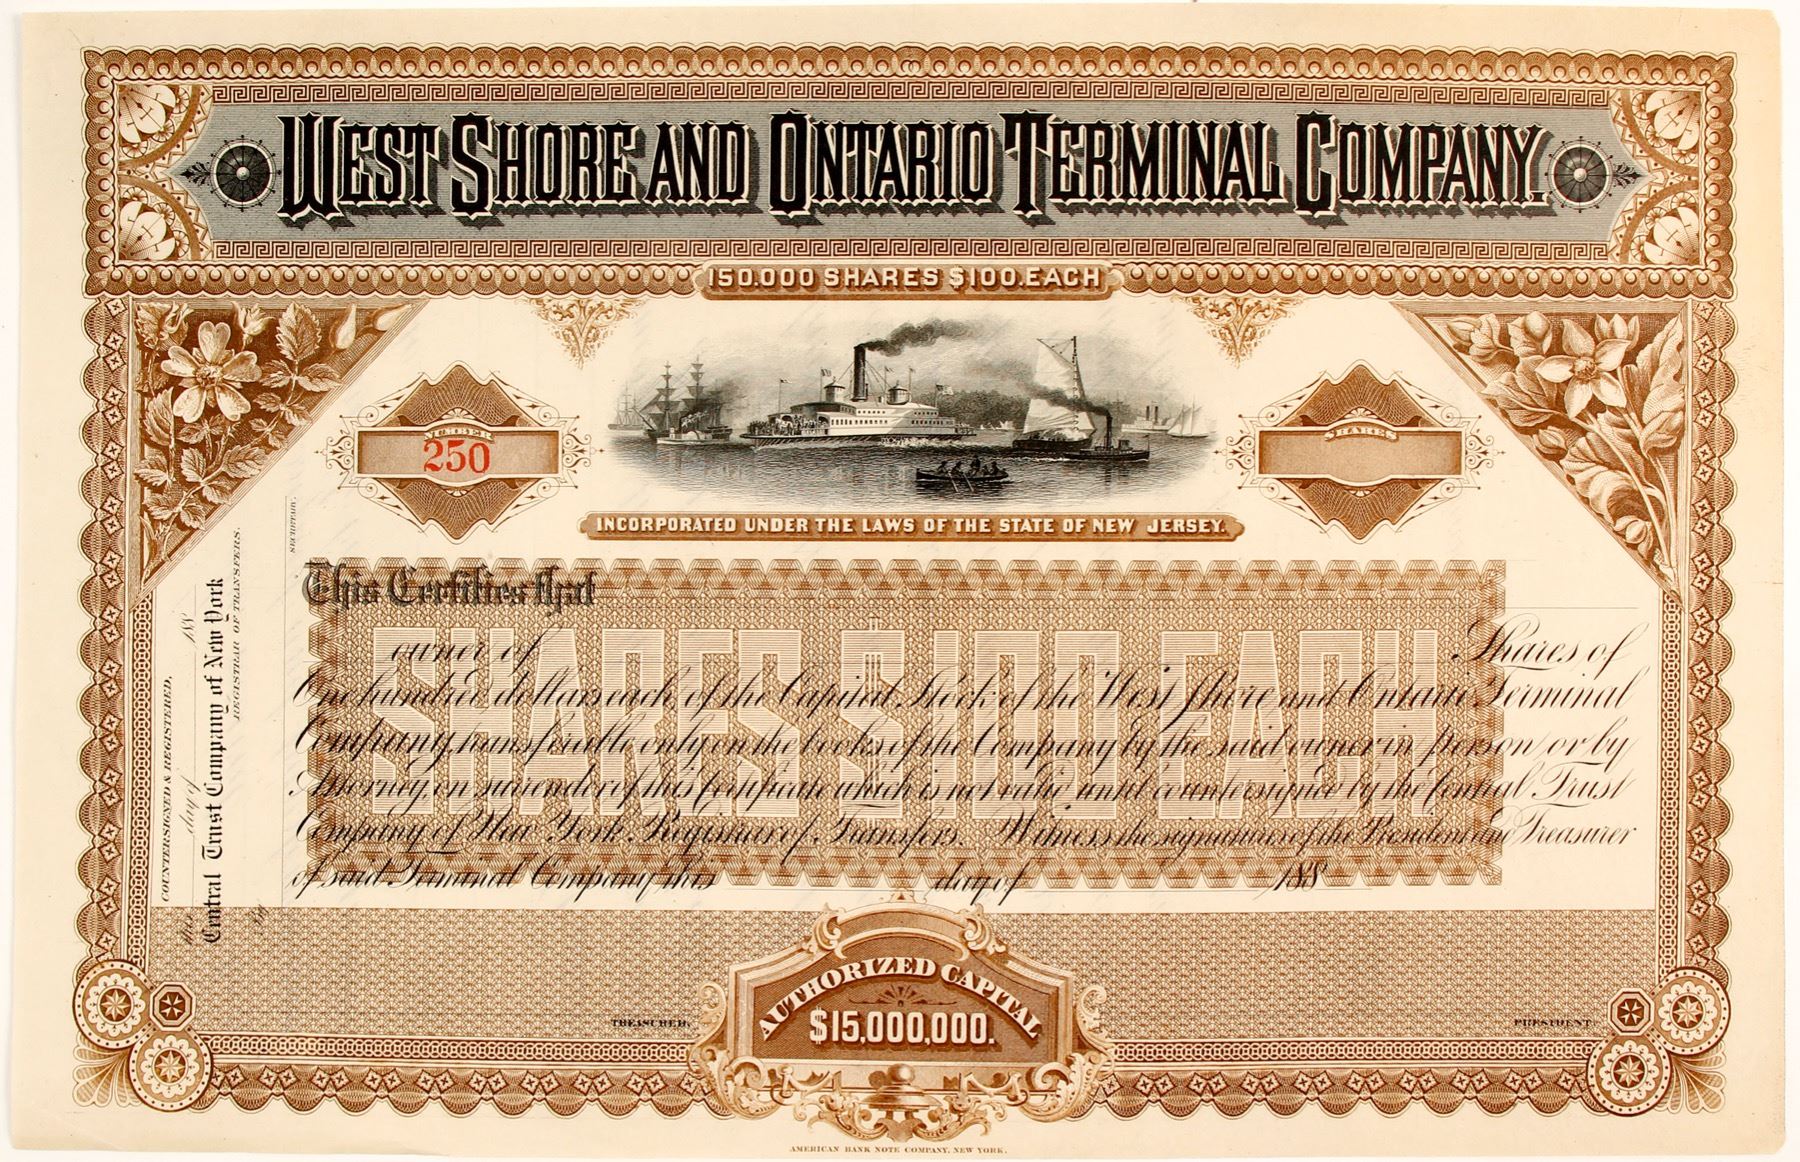 WEST SHORE AND ONTARIO TERMINAL COMPANY.
150.000 SHARES $100.EACH
NUMBER
250
SHARES
INCORPORATED UNDER THE LAWS OF THE STATE OF NEW JERSEY.
This Certifies that
SHARES $100 EACH
owner of Shares of
One hundred dollars each of the Capital Stock of the West Shore and Ontario Terminal
Company, transferable only on the books of the Company by the said owner in person or by
Attorney on surrender of this Certificate which is not valid until countersigned by the Central Trust
Company of New York, Registrar of Transfers. Witness the signatures of the President and Treasurer
of said Terminal Company this day of 188
COUNTERSIGNED & REGISTERED,
this day of 188
Central Trust Company of New York
REGISTRAR OF TRANSFERS.
By SECRETARY.
TREASURER.
PRESIDENT.
AUTHORIZED CAPITAL
$15,000,000.
AMERICAN BANK NOTE COMPANY, NEW YORK.